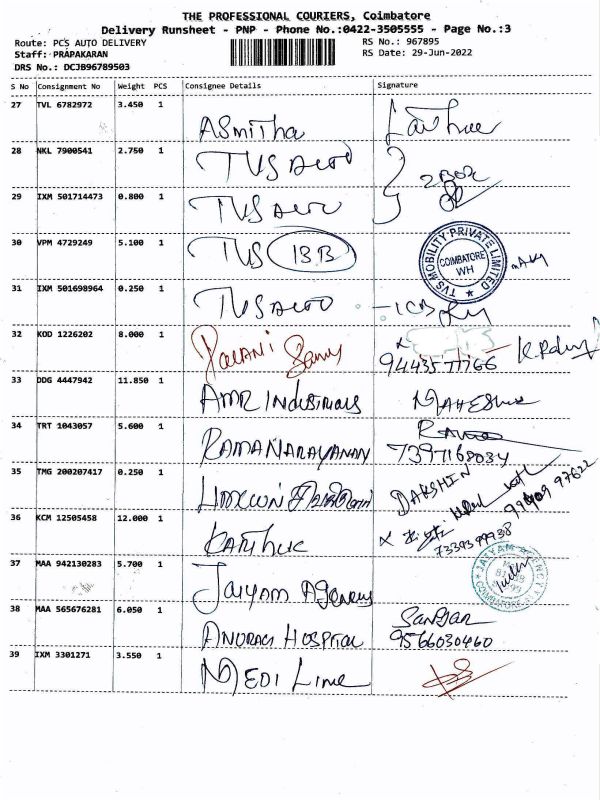 THE PROFESSIONAL COURIERS, Coimbatore
Delivery Runsheet - PNP - Phone No.:0422-3505555 - Page No.:3
Route: PCS AUTO DELIVERY
RS No.: 967895
Staff: PRAPAKARAN
RS Date: 29-Jun-2022
DRS No.: DCJB96789503
S No Consignment No Weight PCS Consignee Details Signature
27 TVL 6782972 3.450 1 Asmitha
28 NKL 7900541 2.750 1 TVS Auto
29 IXM 501714473 0.800 1 TVS Auto
30 VPM 4729249 5.100 1 TVS IBB
TVS MOBILITY PRIVATE LIMITED
COIMBATORE
WH
31 IXM 501698964 0.250 1 TVS Auto
32 KOD 1226202 8.000 1 Palani Samy 9443577766
33 DDG 4447942 11.850 1 AMR Industrials
34 TRT 1043057 5.600 1 RAMANARAYANAN 7397168034
35 TMG 200207417 0.250 1 DAKSHIN
36 KCM 12505458 12.000 1 Karthik
37 MAA 942130283 5.700 1 Jaiyam Agency
JAIYAM AGENCY
38 MAA 565676281 6.050 1 ANURAG HOSPITAL 9566030460
39 IXM 3301271 3.550 1 MEDI Line